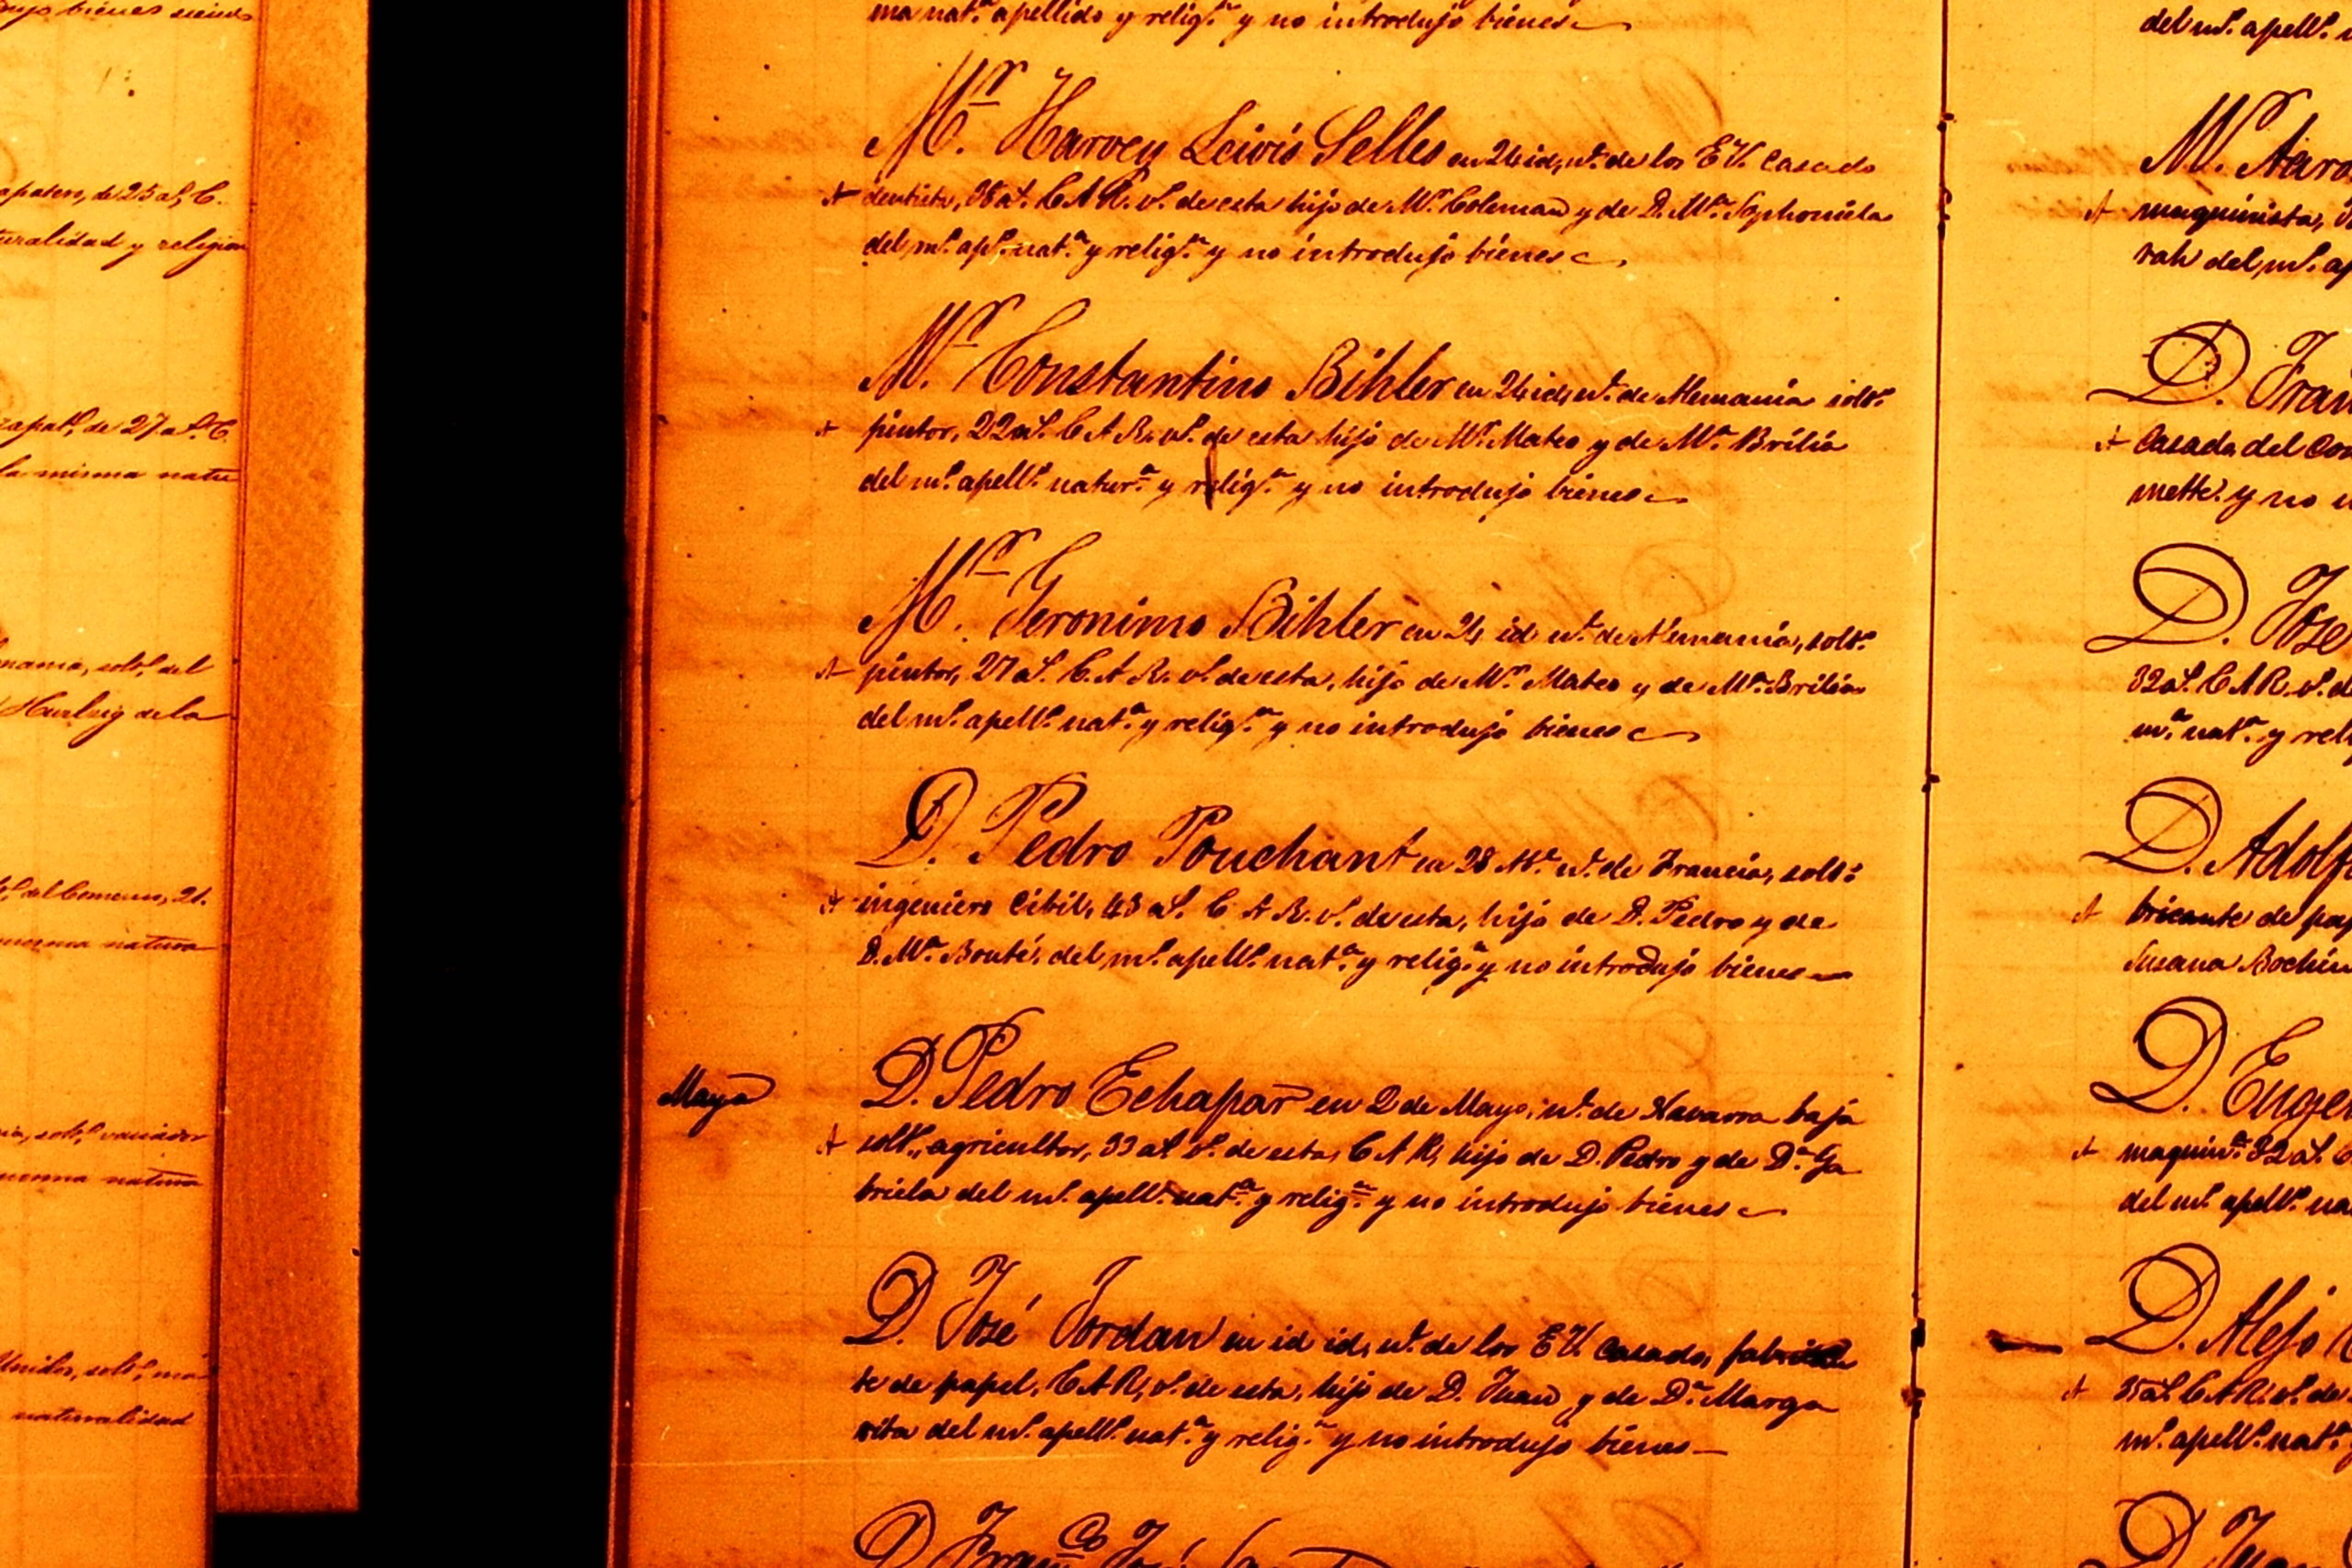 nujo bienes siendo
de 25 a.s C.
turalidad y religion
zapat.o, de 27 a.s C.
la misma natu
mania, solt.o del
de la
del Comercio, 21.
misma natura
misma natura
Unidos, solt.o, ma
naturalidad
ma nat.a apellido y relig.n y no introdujo bienes
M.r Harvey Lewis Selles en 24 id, n.l de los E.U. casado
dentista, 38 a.s C.A.R. v.o de esta hijo de M.r Coleman y de D. M.a Sophonicla
del m.o ap.o nat.a y relig.n y no introdujo bienes
M.r Constantino Bihler en 24 id, n.l de Alemania solt.o
pintor, 22 a.s C.A.R. v.o de esta hijo de M.r Mateo y de M.a Brilia
del m.o apell.o natur.a y relig.n y no introdujo bienes
M.r Geronimo Bihler en 24 id n.l de Alemania, solt.o
pintor, 27 a.s C.A.R. v.o de esta, hijo de M.r Mateo y de M.a Brilia
del m.o apell.o nat.a y relig.n y no introdujo bienes
D. Pedro Pouchant en 28 Ab.l n.l de Francia, solt.o
ingeniero Cibil, 43 a.s C.A.R. v.o de esta, hijo de D. Pedro y de
D. M.a Bouté, del m.o apell.o nat.a y relig.n y no introdujo bienes
Mayo
D. Pedro Echapar en 2 de Mayo, n.l de Navarra baja
solt.o, agricultor, 33 a.s v.o de esta, C.A.R, hijo de D. Pedro y de D.a Ga
briela del m.o apell.o nat.a y relig.n y no introdujo bienes
D. José Jordan en id id, n.l de los E.U. casado, fabrican
te de papel, C.A.R, v.o de esta, hijo de D. Juan y de D.a Marga
rita del m.o apell.o nat.a y relig.n y no introdujo bienes
D. Fran.co José
del m.o apell.o
M.r Aaro
maquinista,
rah del m.o ap
D. Fran
Casada del Com
mette. y no
D. Jose
32 a.s C.A.R. v.o d
m.a nat.a y reli
D. Adolf
bricante de pap
Susana Bochin
D. Euge
maquin.a 32 a.s C
del m.o apell.o na
D. Alejo
35 a.s C.A.R. v.o de
m.o apell.o nat.a
D.